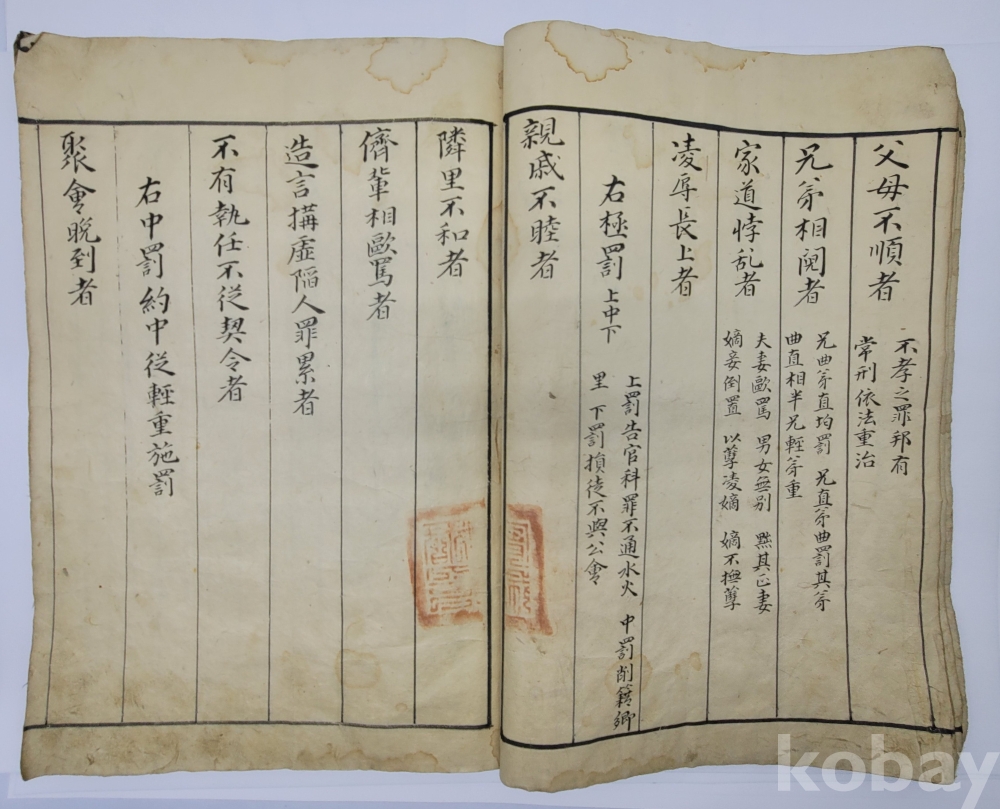 父母不順者
不孝之罪邦有
常刑依法重治
兄弟相鬩者
兄曲弟直均罰 兄直弟曲罰其弟
曲直相半兄輕弟重
家道悖乱者
夫妻歐罵 男女無別 黜其正妻
嫡妾倒置 以孽凌嫡 嫡不撫孽
凌辱長上者
右極罰 上中下
上罰告官科罪不通水火 中罰削籍鄉
里 下罰損徒不與公會
親戚不睦者
隣里不和者
儕輩相歐罵者
造言搆虛陷人罪累者
不有執任不從契令者
右中罰約中從輕重施罰
聚會晩到者
kobay